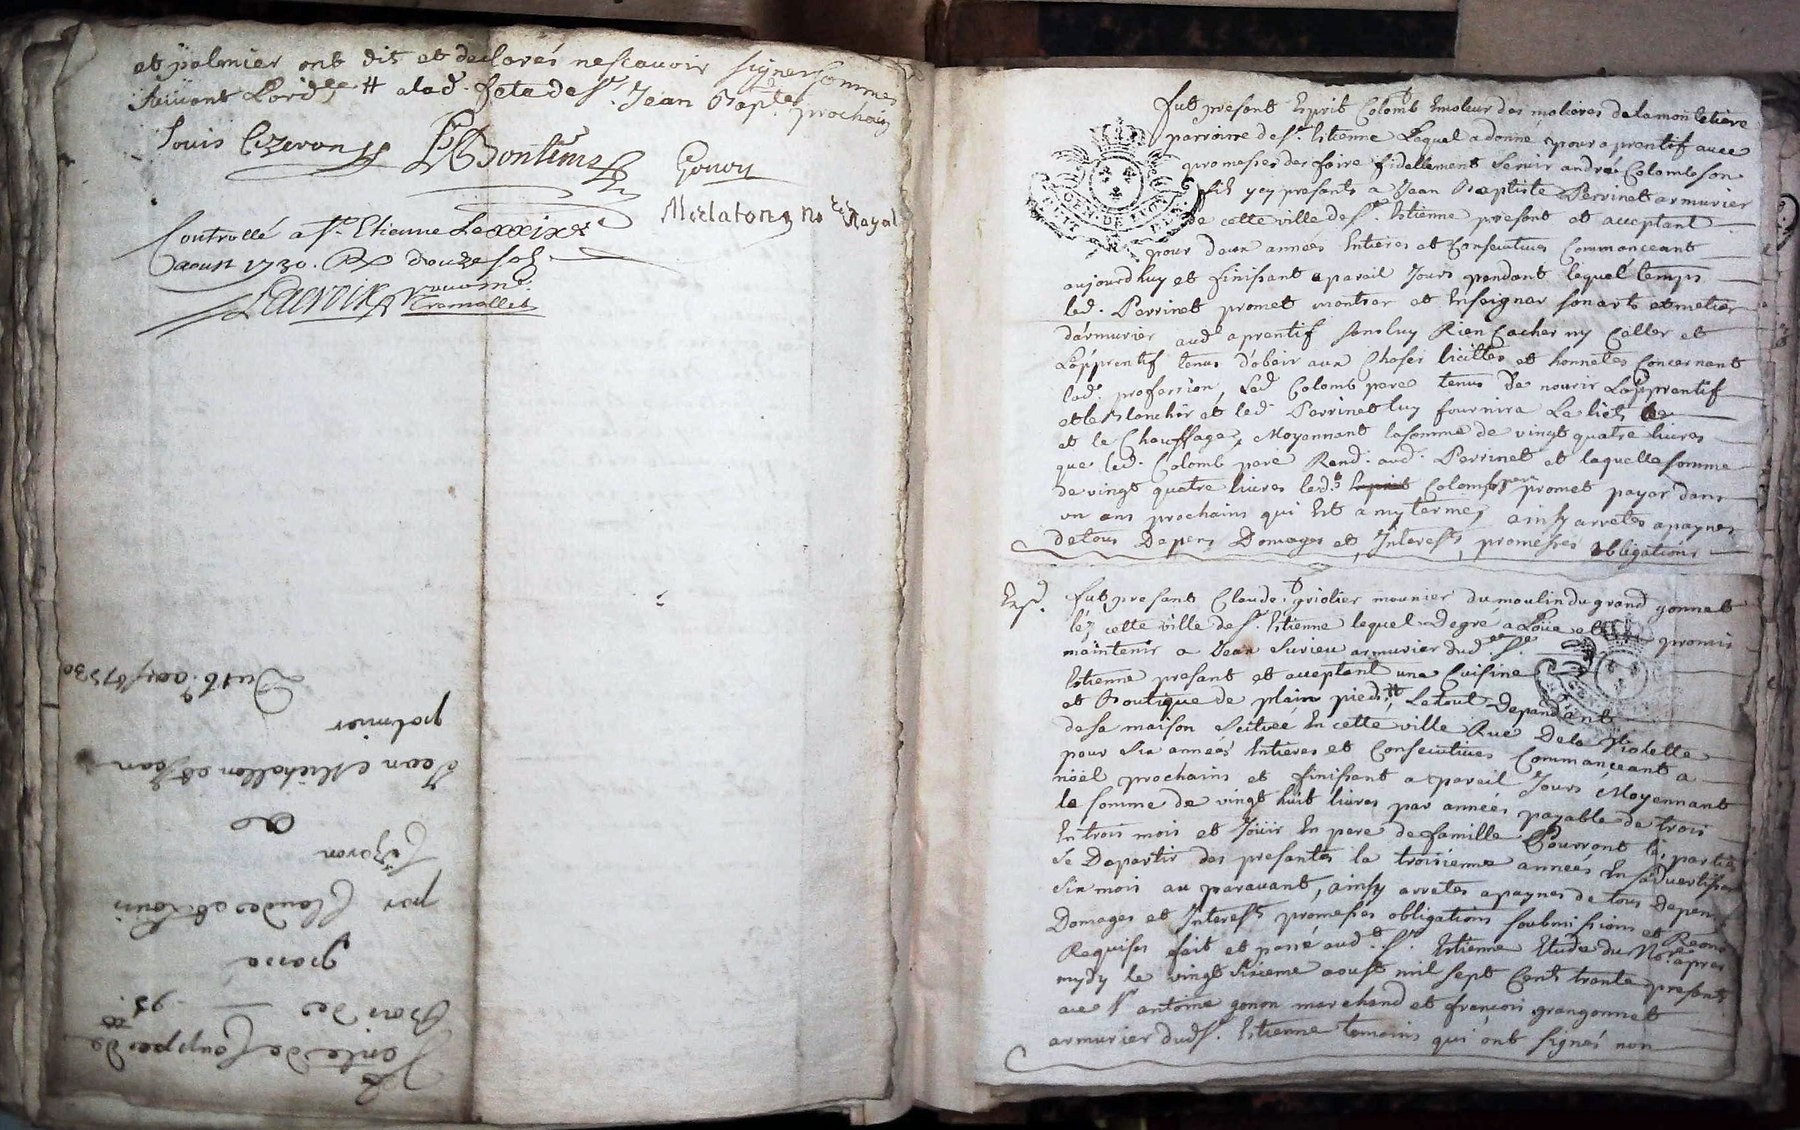 et palmier ont dit et declarés nescavoir signer sommes
suivant Lord.ce # alad. fete de St. Jean Bapte. prochain
Louis Cizeron
Bontems
Gonon
Merlaton no.re Royal
Controllé a St. Etienne Le xxix
aoust 1730. R douze sols
Lacroix
Tramollet
Vente de Couppes de
Bois de
grosse
par Claude et Louis
Cizeron
a
Jean Michallon et Jean
palmier
Du 16 aoust 1730
fut present Esprit Colomb Emoleur des molieres de la monletiere
parroisse de St. Etienne Lequel a donné pour aprentif avec
promesses de faire fidellement servir andré Colomb son
fils y ey presents a Jean Baptiste Perrinet armurier
de cette ville de St. Etienne present et acceptant
GEN. DE LION
pour deux années Entieres et Consecutives Commanceant
aujourdhuy et finissant a pareil Jours pendant lequel temps
led. Perrinet promet montrer et Enseigner son art et metier
d'armurier aud aprentif sans luy Rien Cacher ny Celler et
L'apprentif tenus d'obeir aux Choses licittes et honnetes Concernant
lad. profession, Led Colomb pere tenus de nourir L'apprentif
et le Blanchir et led. Perrinet luy fournira Le lict
et le Chauffage, Moyennant la somme de vingt quatre livres
que led. Colomb pere Rend. aud. Perrinet et laquelle somme
de vingt quatre livres led.t Esprit Colomb pere promet payer dans
un ans prochains qui Est a my terme, ainsy arretés a paynes
de tous Depens Domages et Interests, promesses obligations
Exp.d
fut present Claude griolier mounier du moulin du grand gonnet
léz cette ville de St. Etienne lequel Degré a Loüe et promis
maintenir a Jean Surieu armurier dud St
Etienne present et acceptant une Cuisine
et Boutique de plain pieds, # Le tout Dependant
de sa maison scituée En cette ville Rue De la Violette
pour six années Entieres et Consecutives Commanceant a
noël prochains et finissant a pareil Jours Moyennant
la somme de vingt huit livres par années payable de trois
En trois mois et Joüir En pere de famille Pourront les parties
se Departir des presentes la troisieme années En s'advertissant
six mois au paravant, ainsy arretés a paynes de tous Depens
Domages et Interests promesses obligations soubmissions et Renon
Requises fait et passé aud.t St. Etienne Etude du No.re apres
mydy le vingt sixieme aoust mil sept Cents trante presents
ave Sr antoine gonon marchand et francois grangonnet
armurier dud St. Etienne temoins qui ont signés non